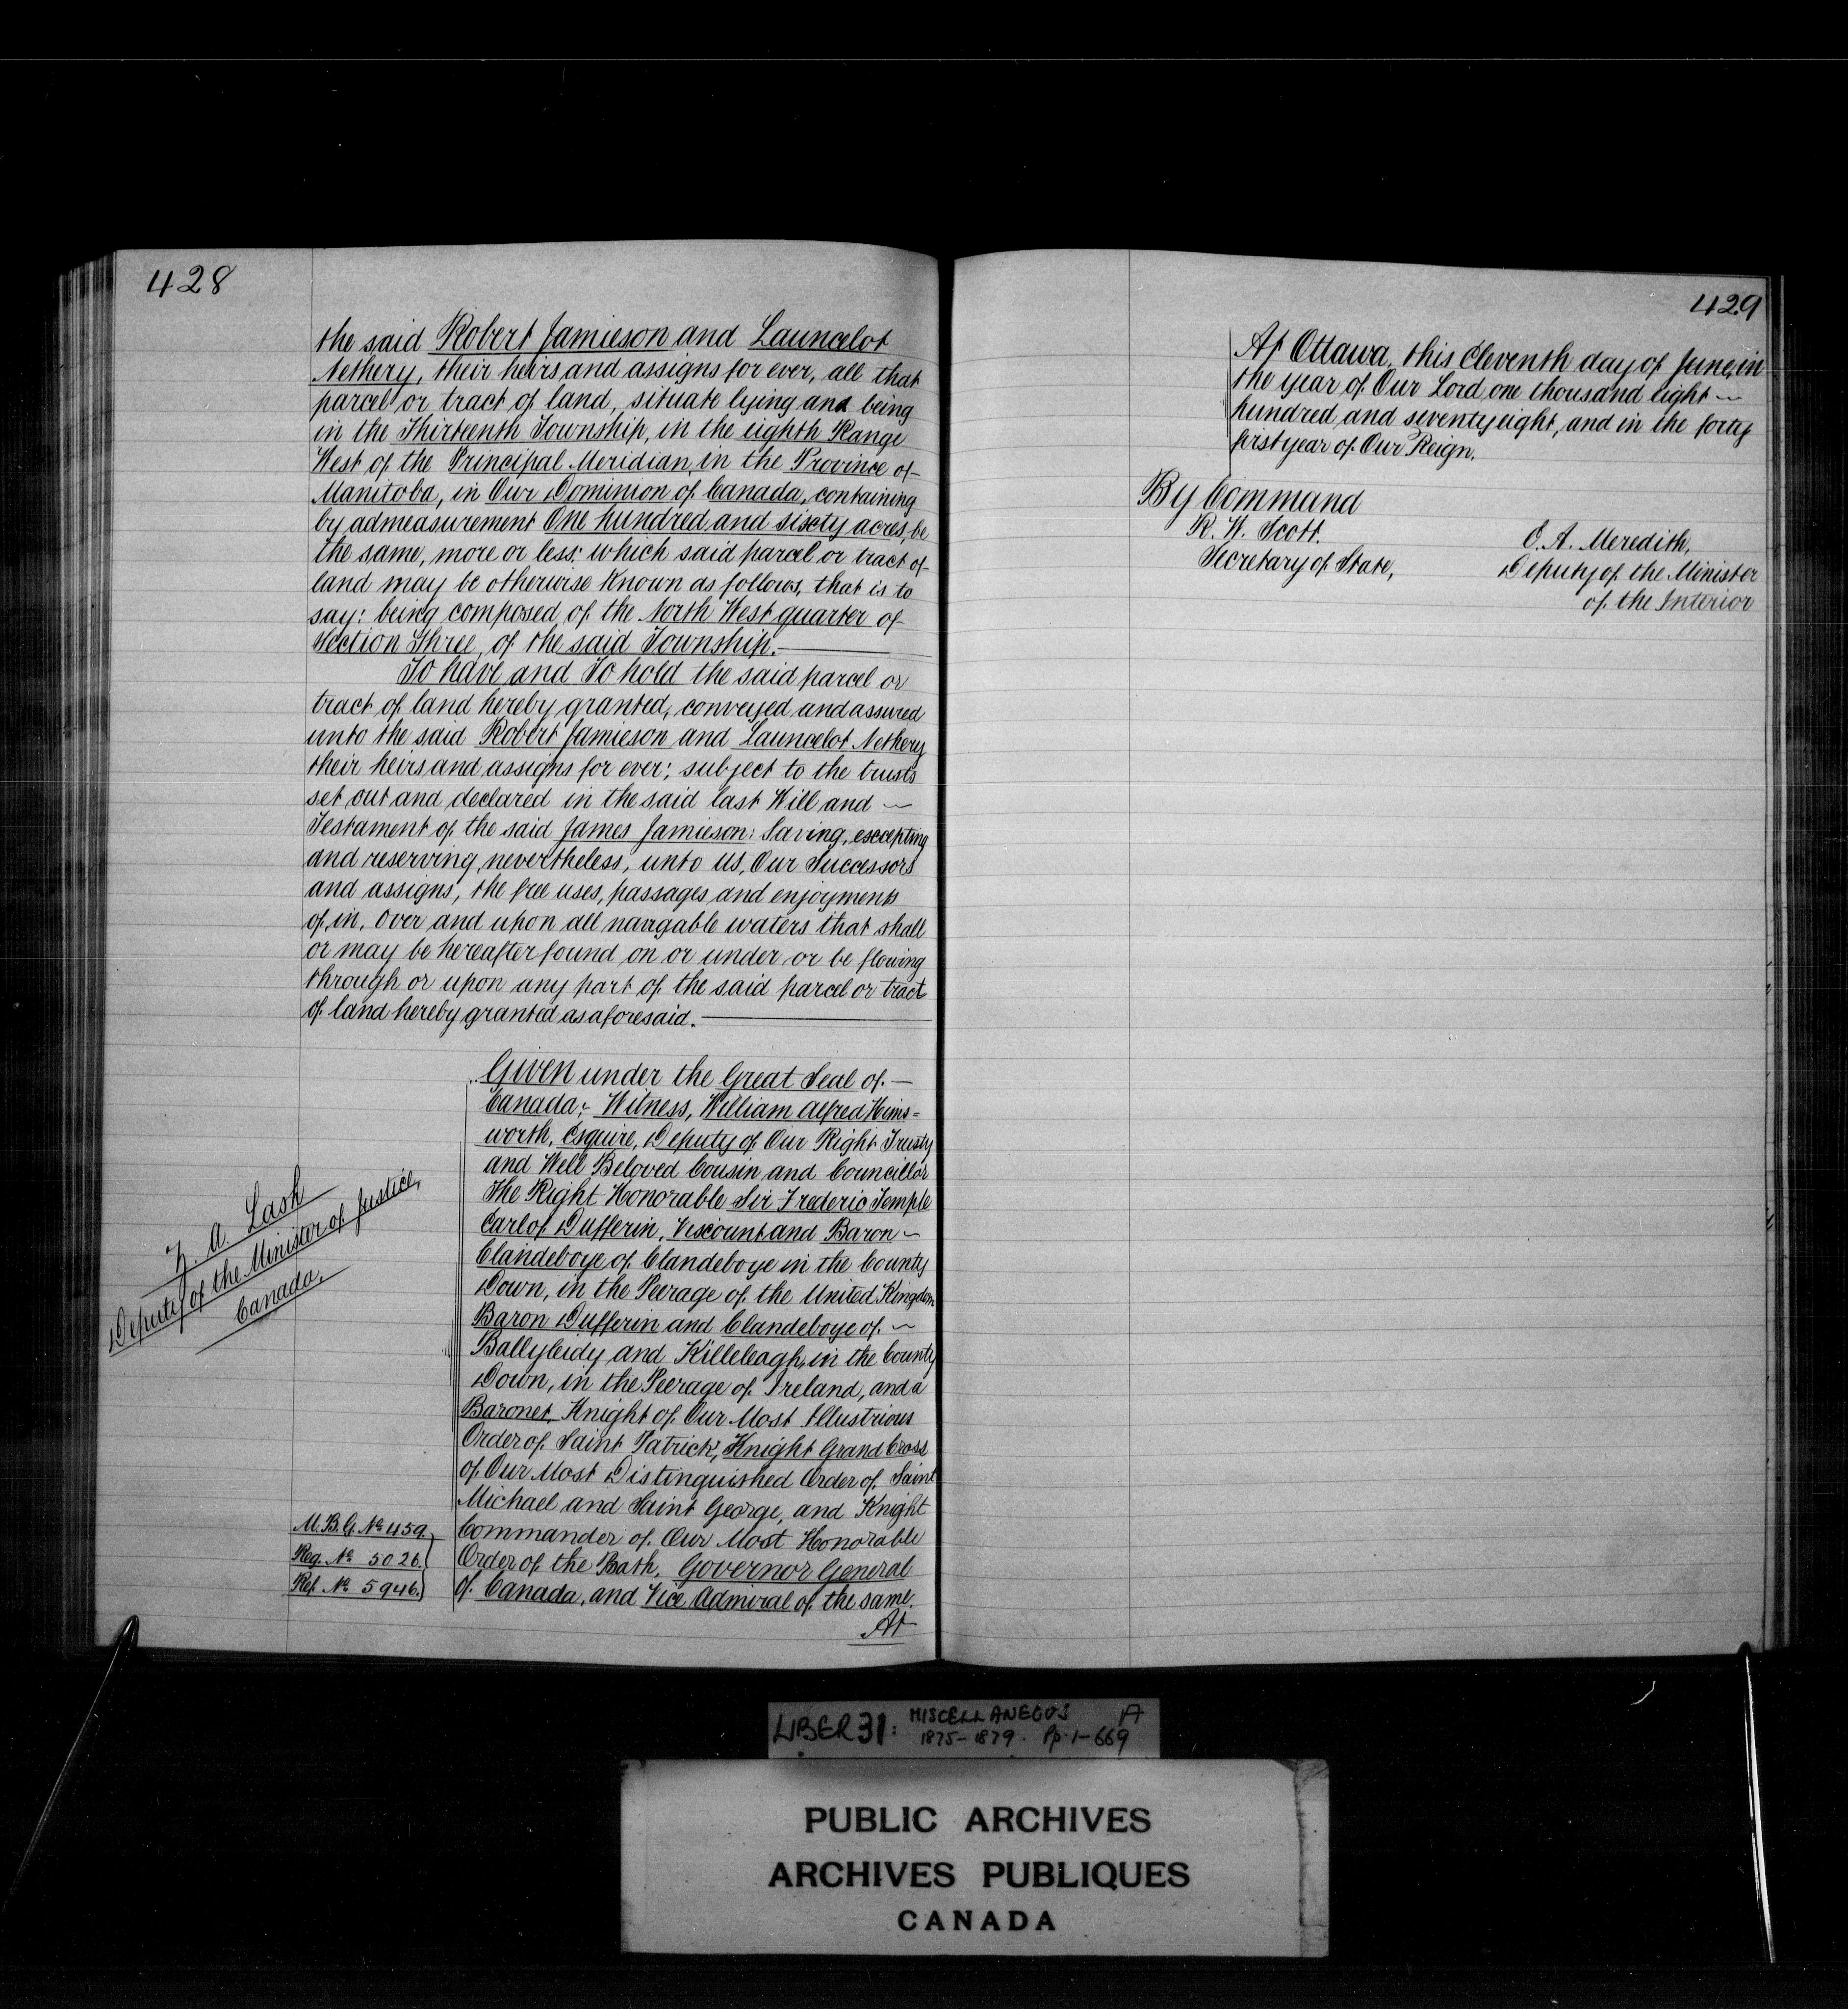 428
the said Robert Jamieson and Launcelot
Nethery, their heirs and assigns for ever, all that
parcel or tract of land, situate lying and being
in the Thirteenth Township, in the eighth Range
West of the Principal Meridian, in the Province of
Manitoba, in Our Dominion of Canada, containing
by admeasurement One hundred and sixty acres, be
the same, more or less: which said parcel or tract of
land may be otherwise known as follows, that is to
say: being composed of the North West quarter of
Section Three, of the said Township.
To have and To hold the said parcel or
tract of land hereby granted, conveyed and assured
unto the said Robert Jamieson and Launcelot Nethery
their heirs and assigns for ever; subject to the trusts
set out and declared in the said last Will and
Testament of the said James Jamieson: Saving, excepting
and reserving, nevertheless, unto us, Our Successors
and assigns, the free uses, passages and enjoyments
of, in, over and upon all navigable waters that shall
or may be hereafter found on or under or be flowing
through or upon any part of the said parcel or tract
of land hereby granted as aforesaid.
Given under the Great Seal of
Canada;- Witness, William Alfred Hims=
worth, Esquire, Deputy of Our Right Trusty
and Well Beloved Cousin and Councillor
The Right Honorable Sir Frederic Temple
Earl of Dufferin, Viscount and Baron
Clandeboye of Clandeboye in the County
Down, in the Peerage of the United Kingdom
Baron Dufferin and Clandeboye of
Ballyleidy and Killeleagh, in the County
Down, in the Peerage of Ireland, and a
Baronet, Knight of Our Most Illustrious
Order of Saint Patrick, Knight Grand Cross
of Our Most Distinguished Order of Saint
Michael and Saint George, and Knight
Commander of Our Most Honorable
Order of the Bath, Governor General
of Canada, and Vice Admiral of the same.
At
Z. A. Lash
Deputy of the Minister of Justice,
Canada.
M.B.G. No 459.
Reg. No 5026.
Ref. No 5946.
429
At Ottawa, this Eleventh day of June, in
the year of Our Lord, one thousand eight
hundred and seventy eight, and in the forty
first year of Our Reign.
By Command
R. W. Scott.
Secretary of State,
E. A. Meredith,
Deputy of the Minister
of the Interior
LIBER 31: MISCELLANEOUS A
1875-1879. Pp. 1-669
PUBLIC ARCHIVES
ARCHIVES PUBLIQUES
CANADA